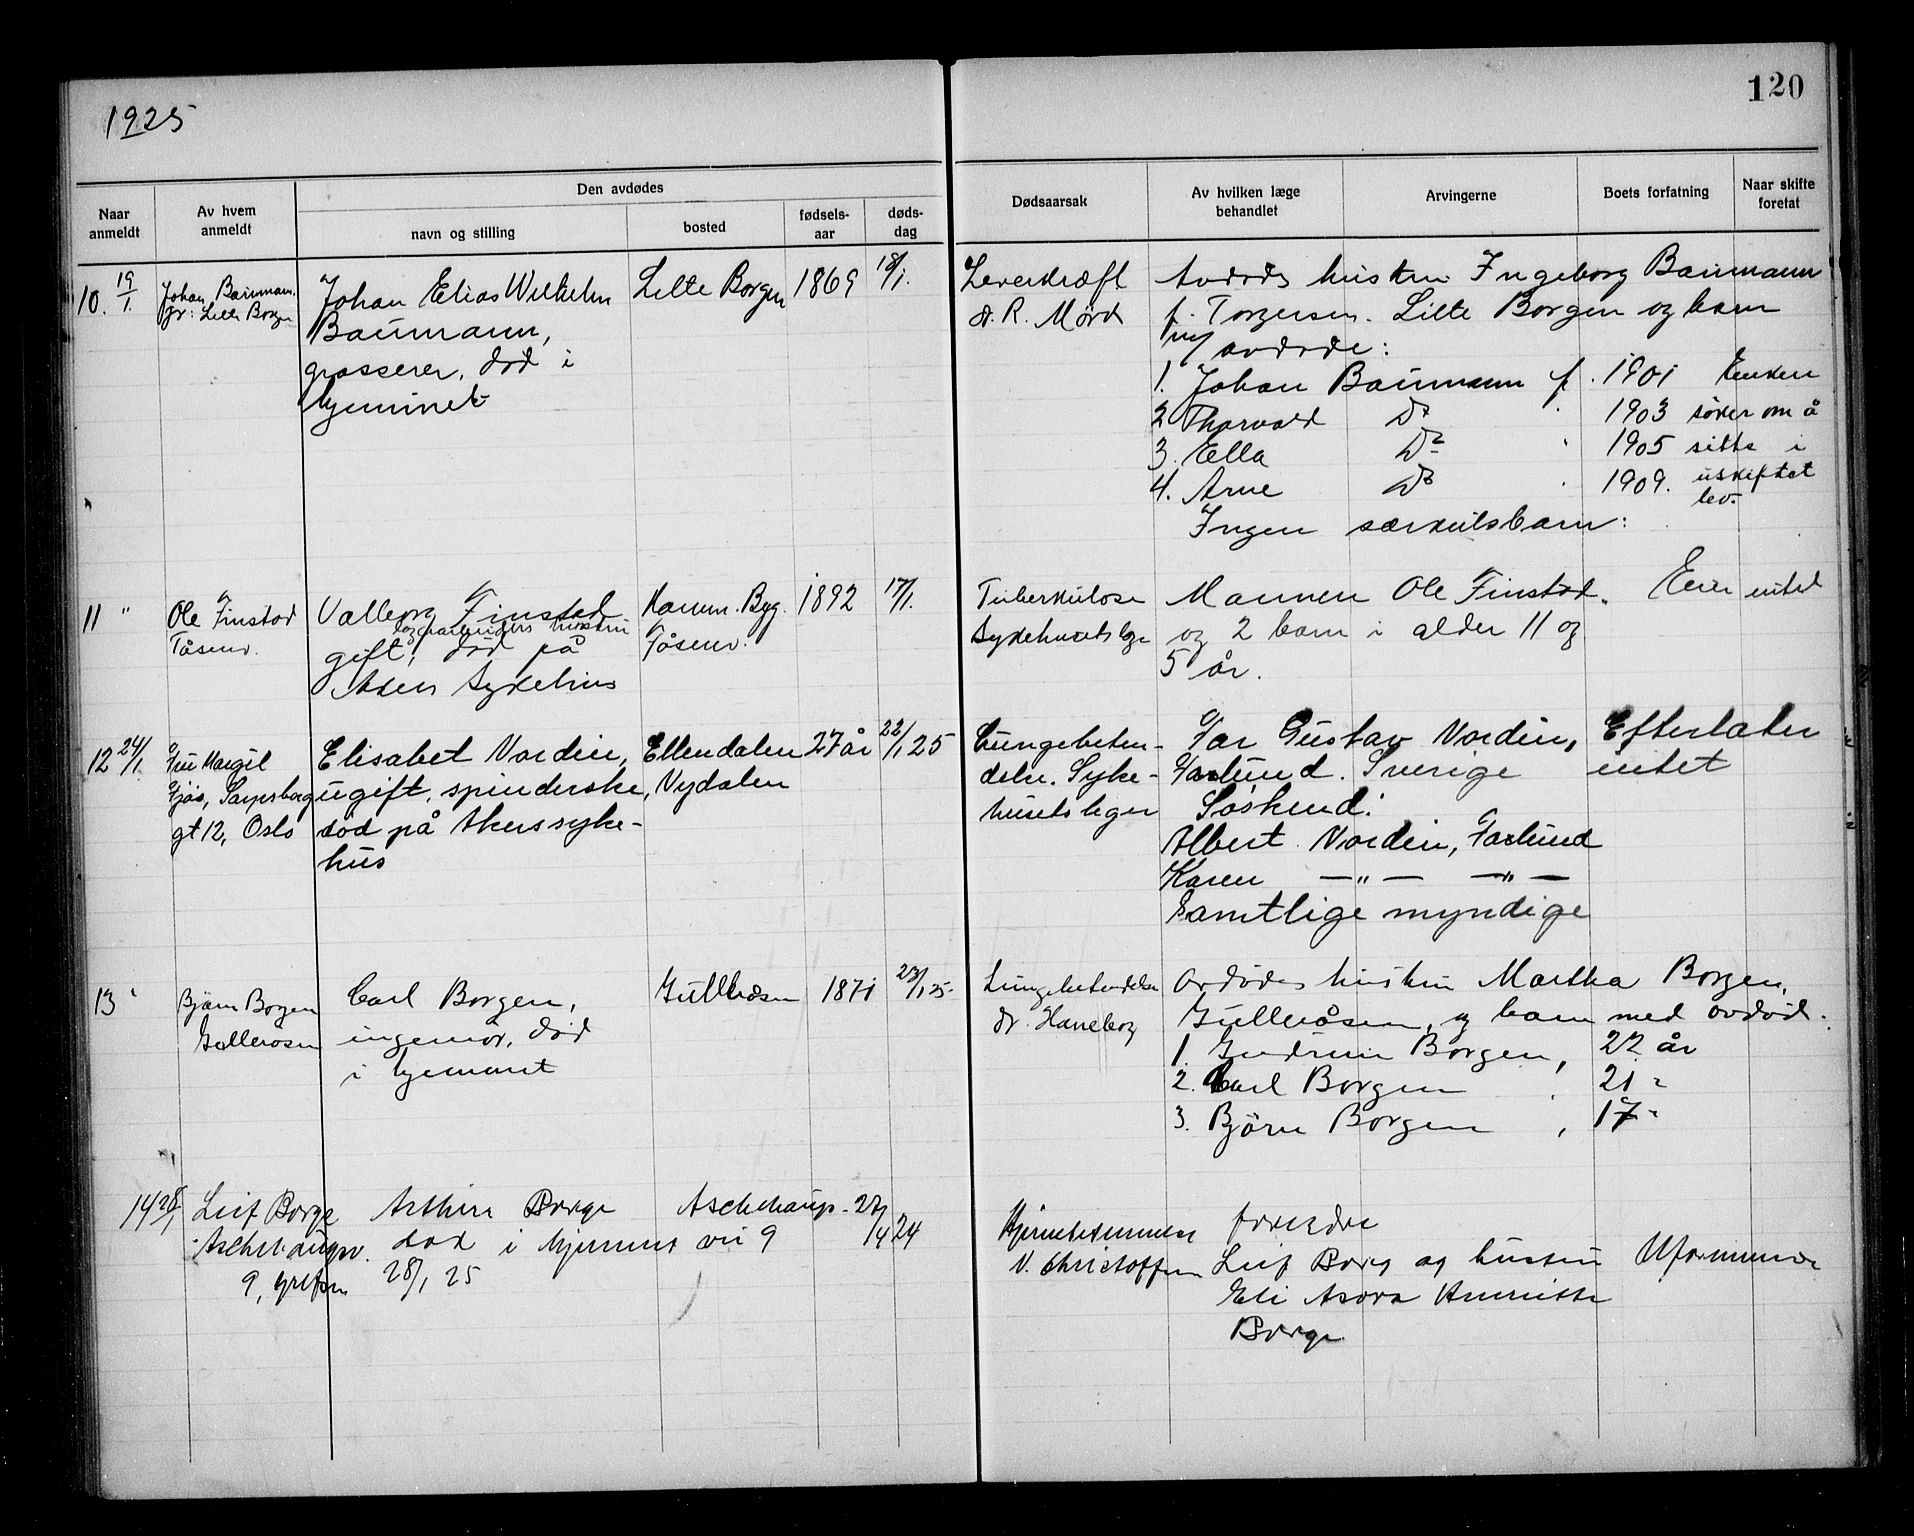 1925
120
Naar anmeldt
Av hvem anmeldt
Den avdødes
navn og stilling
bosted
fødsels-aar
døds-dag
Dødsaarsak
Av hvilken læge behandlet
Arvingerne
Boets forfatning
Naar skifte foretat
10. 19/1. Johan Baumann jr: Lille Borgen
Johan Elias Wilhelm
Baumann,
grosserer, død i
hjemmet
Lille Borgen 1869 18/1.
Leverkræft
dr. R. Mørd
Avdødes hustru Ingeborg Baumann
f. Torgersen. Lille Borgen og barn
m/ avdøde:
1. Johan Baumann f. 1901 Enken
2 Thorvald Do " 1903 søker om å
3. Ella Do " 1905 sitte i
4. Arne Do " 1909. uskiftet
bo.
Ingen særkulsbarn:
11 " Ole Finstad
Tåsenv.
Valborg Finstad
hustru
gift, død på
Akers sykehus
Komm. Byg.
Tåsenv.
1892 17/1.
Tuberkulose
Sykehusets lege
Mannen Ole Finstad. Eier intet
og 2 barn i alder 11 og
5 år.
12 24/1 Fru Margit
Gjøs, Sarpsborg
gt 12, Oslo
Elisabet Nordin,
ugift, spinderske,
død på Akers syke-
hus
Ellendalen
Nydalen
27 år 22/1 25
Lungebeten-
delse. Syke-
husets leger
Far Gustav Nordin, Efterlater
Farlund. Sverige intet
Søskend:
Albert Nordin, Farlund
Karen — " — — " —
Samtlige myndige
13 " Bjørn Borgen
Gulleråsen
Carl Borgen,
ingeniør, død
i hjemmet
Gulleråsen 1871 23/1 25.
Lungebetendelse
dr. Haneborg
Avdødes hustru Martha Borgen,
Gulleråsen, og barn med avdød.
1. Gudrun Borgen, 22 år
2. Carl Borgen " 21 "
3. Bjørn Borgen , 17 "
14 28/1 Leif Borge
Aschehaugv.
9, Grefsen
Arthur Borge
død i hjemmet
28/1 25
Aschehaug-
vei 9
27/4 24
Hjernebetennelse
N. Christoffersen
foreldre
Leif Borge og hustru Uformuende
Eli Asora Henriette
Borge